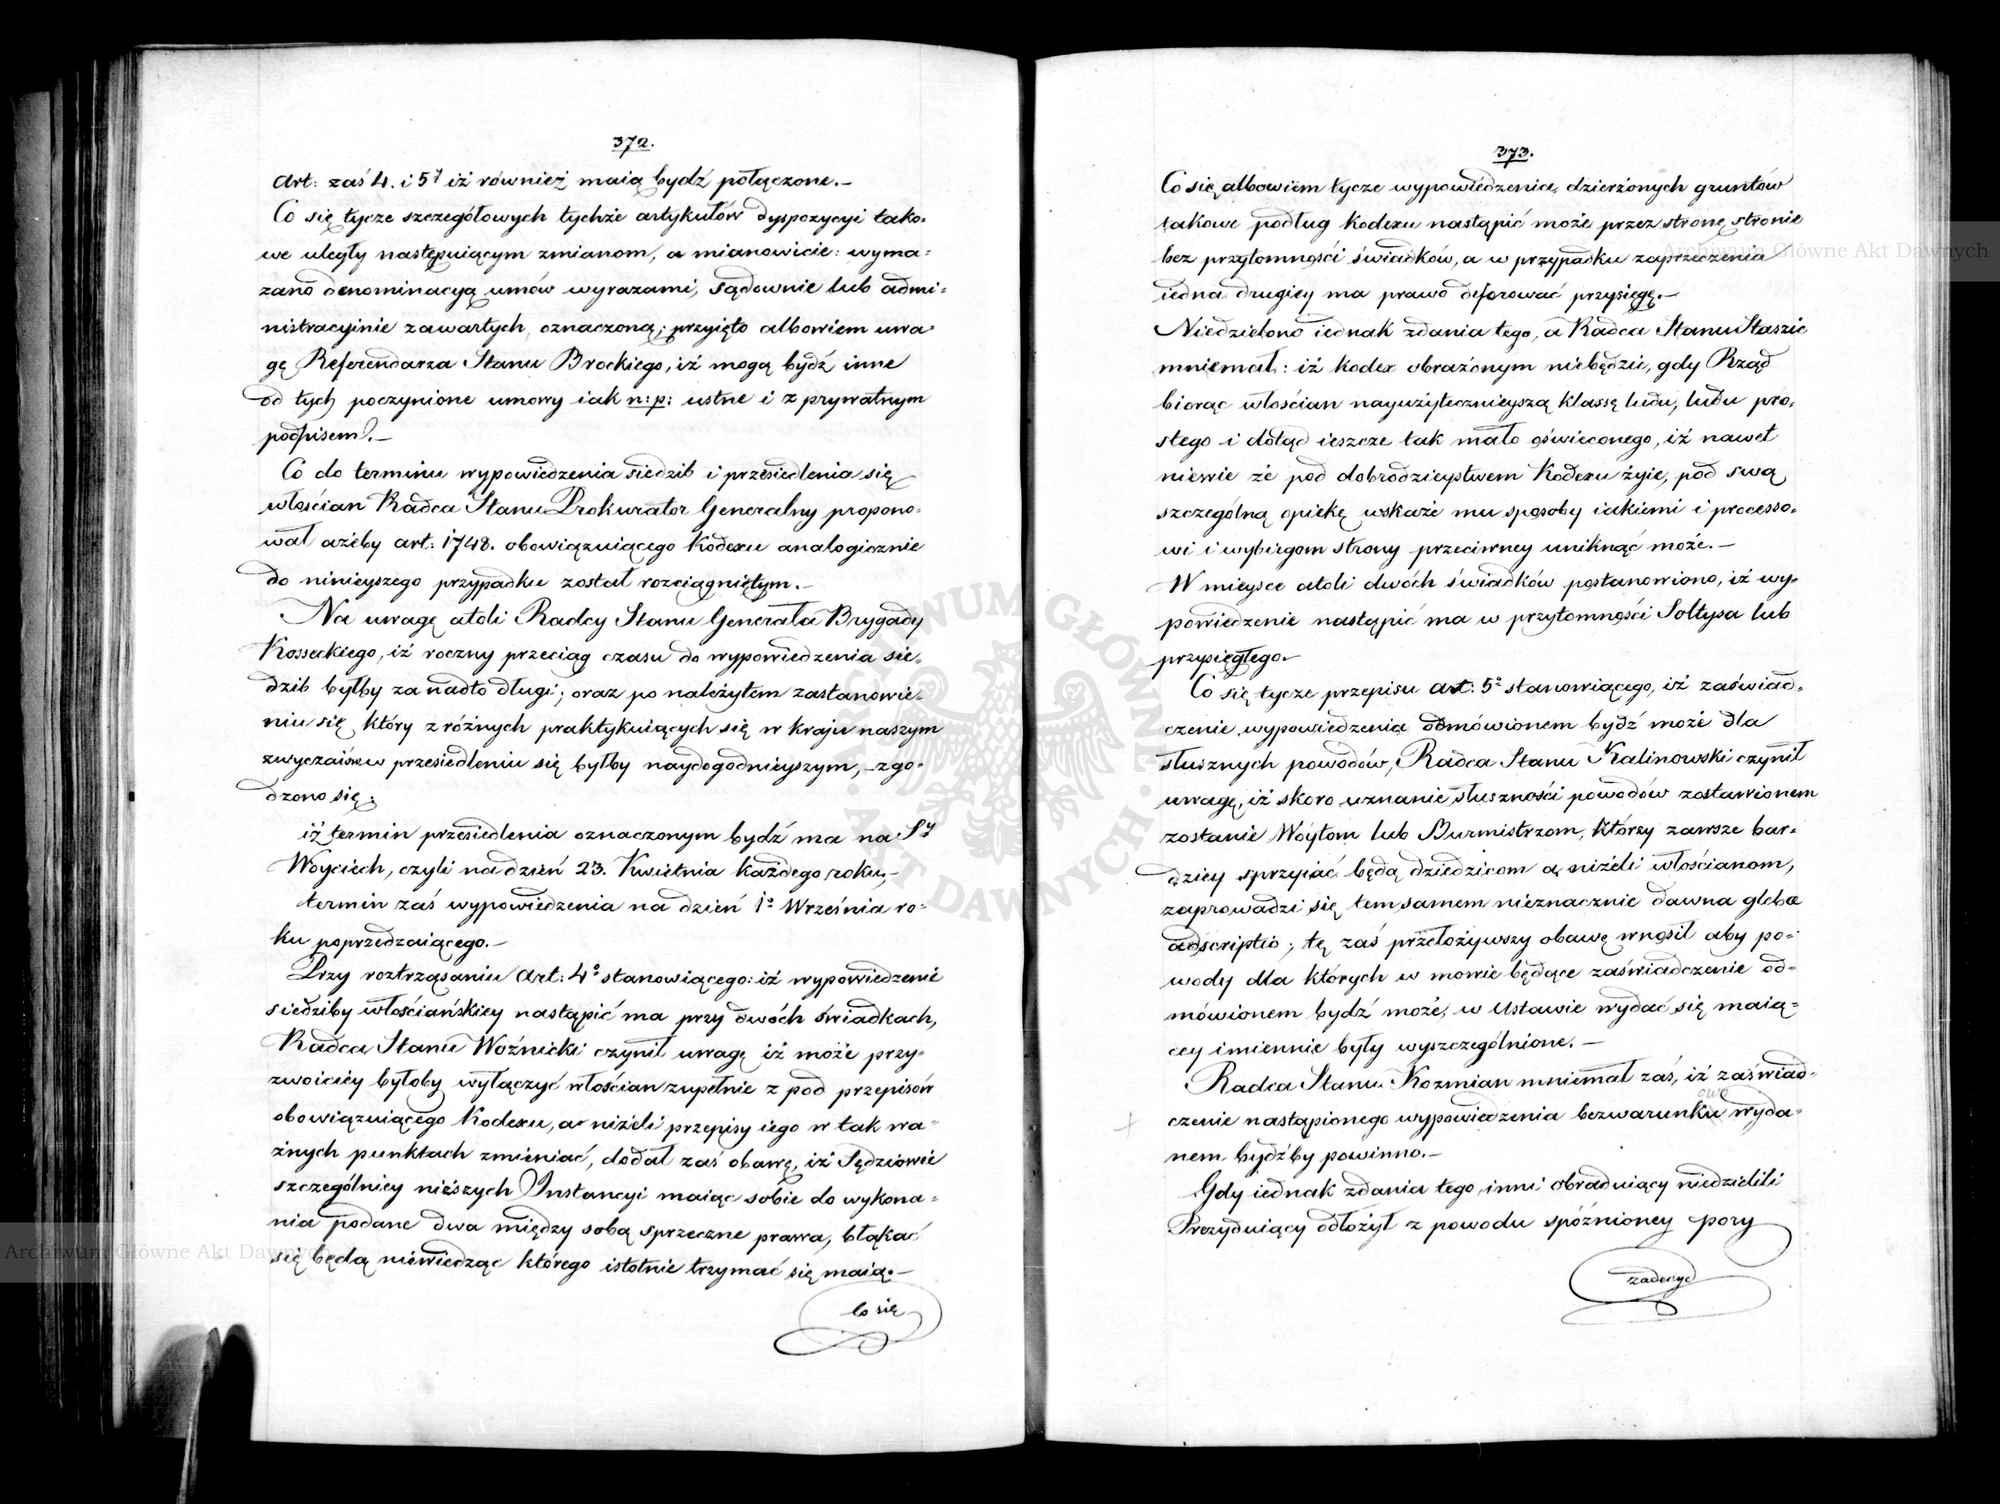 372.
Art: zaś 4. i 5ty iż również maią bydź połączone.–
Co się tycze szczegółowych tychże artykułów dyspozycyi tako-
we uległy następuiącym zmianom, a mianowicie: wyma-
zano denominacyą umów wyrazami, sądownie lub admi-
nistracyinie zawartych, oznaczoną; przyięto albowiem uwa-
gę Referendarza Stanu Brockiego, iż mogą bydź inne
od tych poczynione umowy iak n: p: ustne i z prywatnym
podpisem.–
Co do terminu wypowiedzenia siedzib i przesiedlenia się
włościan Radca Stanu Prokurator Generalny propono-
wał ażeby art: 1748. obowiązuiącego Kodexu analogicznie
do ninieyszego przypadku został rozciągniętym.–
Na uwagę atoli Radcy Stanu Generała Brygady
Kosseckiego, iż roczny przeciąg czasu do wypowiedzenia sie-
dzib byłby za nadto długi; oraz po należytem zastanowie-
niu się, który z różnych praktykuiących się w kraju naszym
zwyczaiów przesiedleniu się byłby naydogodnieyszym, zgo-
dzono się;
iż termin przesiedlenia oznaczonym bydź ma na Sty
Woyciech, czyli na dzień 23. Kwietnia każdego roku,–
termin zaś wypowiedzenia na dzień 1o Września ro-
ku poprzedzaiącego.–
Przy roztrząsaniu Art: 4o stanowiącego: iż wypowiedzenie
siedziby włościańskiey nastąpić ma przy dwóch świadkach,
Radca Stanu Woźnicki czynił uwagę iż może przy-
zwoiciey byłoby wyłączyć włościan zupełnie z pod przepisów
obowiązuiącego Kodexu, a niżeli przepisy iego w tak wa-
żnych punktach zmieniać, dodał zaś obawę, iż Sędziowie
szczególniey niższych Instancyi maiąc sobie do wykona-
nia podane dwa między sobą sprzeczne prawa, błąkać
się będą niewiedząc którego istotnie trzymać się maią.–
Co się
373.
Co się albowiem tycze wypowiedzenia, dzierżonych gruntów
takowe podług Kodexu nastąpić może przez stronę stronie
bez przytomności świadków, a w przypadku zaprzeczenia
iedna drugiey ma prawo deferować przysięgę.–
Niedzielono iednak zdania tego, a Radca Stanu Staszic
mniemał: iż Kodex obrażonym niebędzie, gdy Rząd
biorąc włościan nayużytecznieyszą klassę ludu, ludu pro-
stego i dotąd ieszcze tak mało oświeconego, iż nawet
niewie że pod dobrodzieystwem Kodexu żyie, pod swą
szczególną opiekę wskaże mu sposoby iakiemi i processo-
wi i wybiegom strony przeciwney uniknąć może.–
W mieysce atoli dwóch świadków postanowiono, iż wy-
powiedzenie nastąpić ma w przytomności Sołtysa lub
przysięgłego.–
Co się tycze przepisu art: 5o stanowiącego, iż zaświad-
czenie wypowiedzenia odmówionem bydź może dla
słusznych powodów, Radca Stanu Kalinowski czynił
uwagę, iż skoro uznanie słuszności powodów zostawionem
zostanie Wóytom lub Burmistrzom, którzy zawsze bar-
dziey sprzyiać będą dziedzicom a niżeli włościanom,
zaprowadzi się tem samem nieznacznie dawna glebæ
adscriptio; tę zaś przełożywszy obawę wnosił aby po-
wody dla których w mowie będące zaświadczenie od-
mówionem bydź może, w Ustawie wydać się maią-
cey imiennie były wyszczególnione.–
Radca Stanu Kozmian mniemał zaś, iż zaświad-
czenie nastąpionego wypowiedzenia bezwarunku wyda-
nem bydźby powinno.–
Gdy iednak zdania tego inni obraduiący niedzielili
Prezyduiący odłożył z powodu spóźnioney pory
zadecyd
Archiwum Główne Akt Dawnych
Archiwum Główne Akt Dawnych
ARCHIWUM GŁÓWNE AKT DAWNYCH